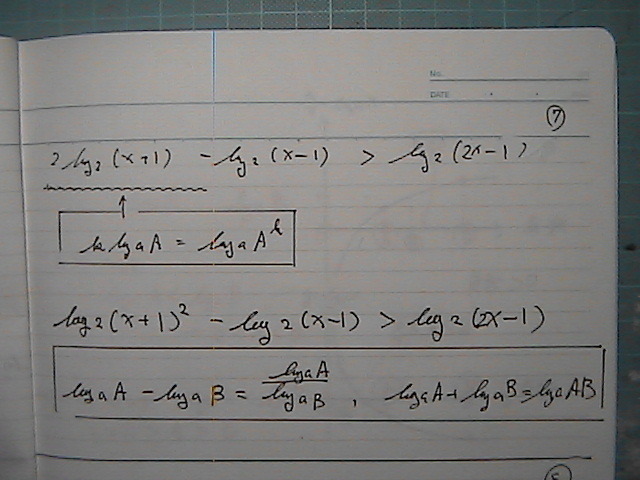 No.
DATE
⑦
2 log₂ (x+1) - log₂ (x-1) > log₂ (2x-1)
↑
k logₐA = logₐAᵏ
log₂(x+1)² - log₂(x-1) > log₂(2x-1)
logₐA - logₐB = logₐA/logₐB , logₐA + logₐB = logₐAB